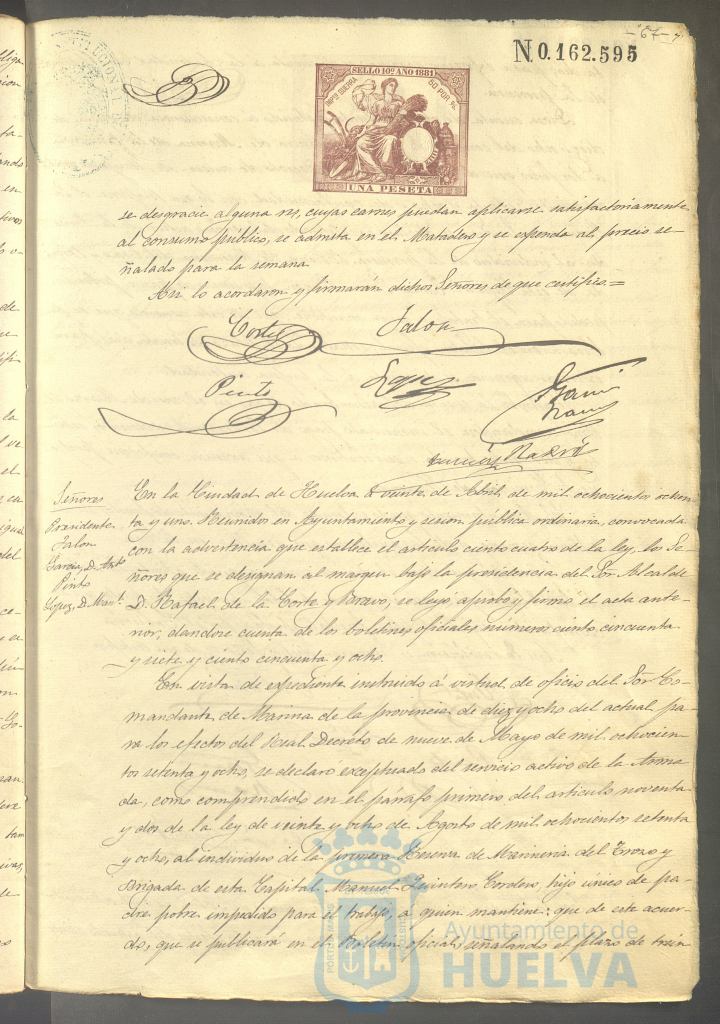 -67-
N.0.162.595
SELLO 10º AÑO 1881
IMPTO GUERRA
50 POR %
UNA PESETA
se desgracie alguna res, cuyas carnes puedan aplicarse satisfactoriamente
al consumo público, se admita en el Matadero y se expenda al precio se-
ñalado para la semana
Asi lo acordaron y firmarán dichos Señores de que certifico.=
Corte Jalon
Pinto Lopez Garcia
Señores
Presidente
Jalon
Garcia, D. Antº
Pinto
Lopez, D. Manl.
En la Ciudad de Huelva a veinte de Abril de mil ochocientos ochen-
ta y uno. Reunidos en Ayuntamiento y sesion pública ordinaria, convocada
con la advertencia que establece el articulo ciento cuatro de la ley, los Se-
ñores que se designan al margen bajo la presidencia del Sor Alcalde
D. Rafael de la Corte y Bravo, se leyó aprobó y firmó el acta ante-
rior, dandose cuenta de los boletines oficiales números ciento cincuenta
y siete y ciento cincuenta y ocho.
En vista de expediente instruido á virtud de oficio del Sor Co-
mandante de Marina de la provincia de diez y ocho del actual pa-
ra los efectos del Real Decreto de nueve de Mayo de mil ochocien-
tos setenta y ocho, se declaró exceptuado del servicio activo de la Arma-
da, como comprendido en el párrafo primero del articulo noventa
y dos de la ley de veinte y ocho de Agosto de mil ochocientos setenta
y ocho, al individuo de la primera Reserva de Marineria del Trozo y
Brigada de esta Capital Manuel Quintero Cordero, hijo único de pa-
dre pobre impedido para el trabajo, a quien mantiene: que de este acuer-
do, que se publicará en el Boletin oficial señalando el plazo de trein
Ayuntamiento de
HUELVA